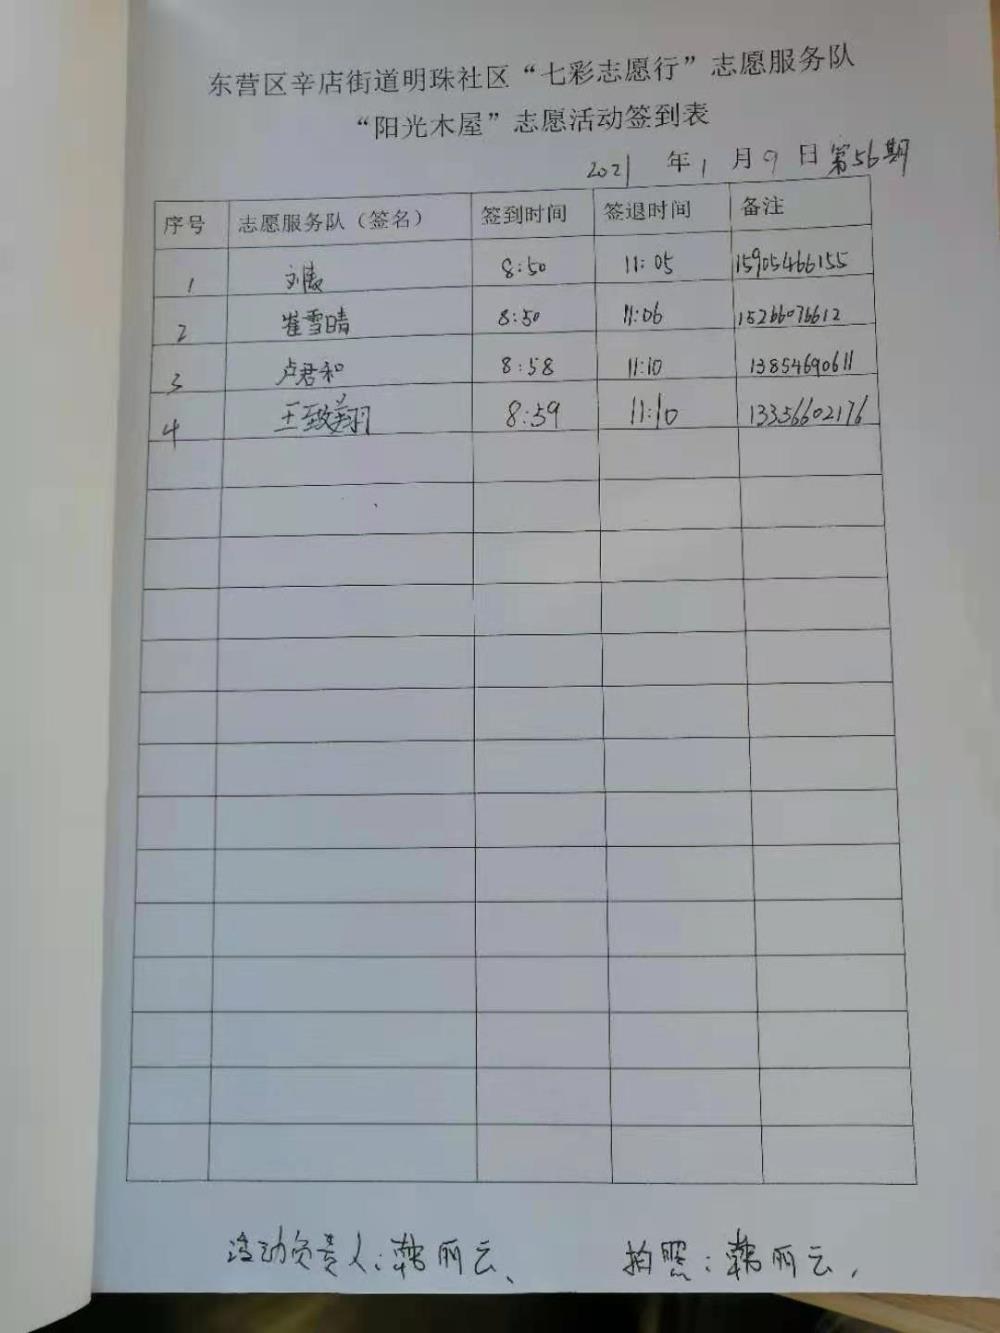 东营区辛店街道明珠社区“七彩志愿行”志愿服务队
“阳光木屋”志愿活动签到表
2021 年 1 月 9 日 第56期
序号 志愿服务队（签名） 签到时间 签退时间 备注
1 刘 8:50 11:05 15905466155
2 崔雪晴 8:50 11:06 15266076612
3 卢君和 8:58 11:10 13854690611
4 王致翔 8:59 11:10 13356602176
活动负责人：韩丽云、 拍照：韩丽云，